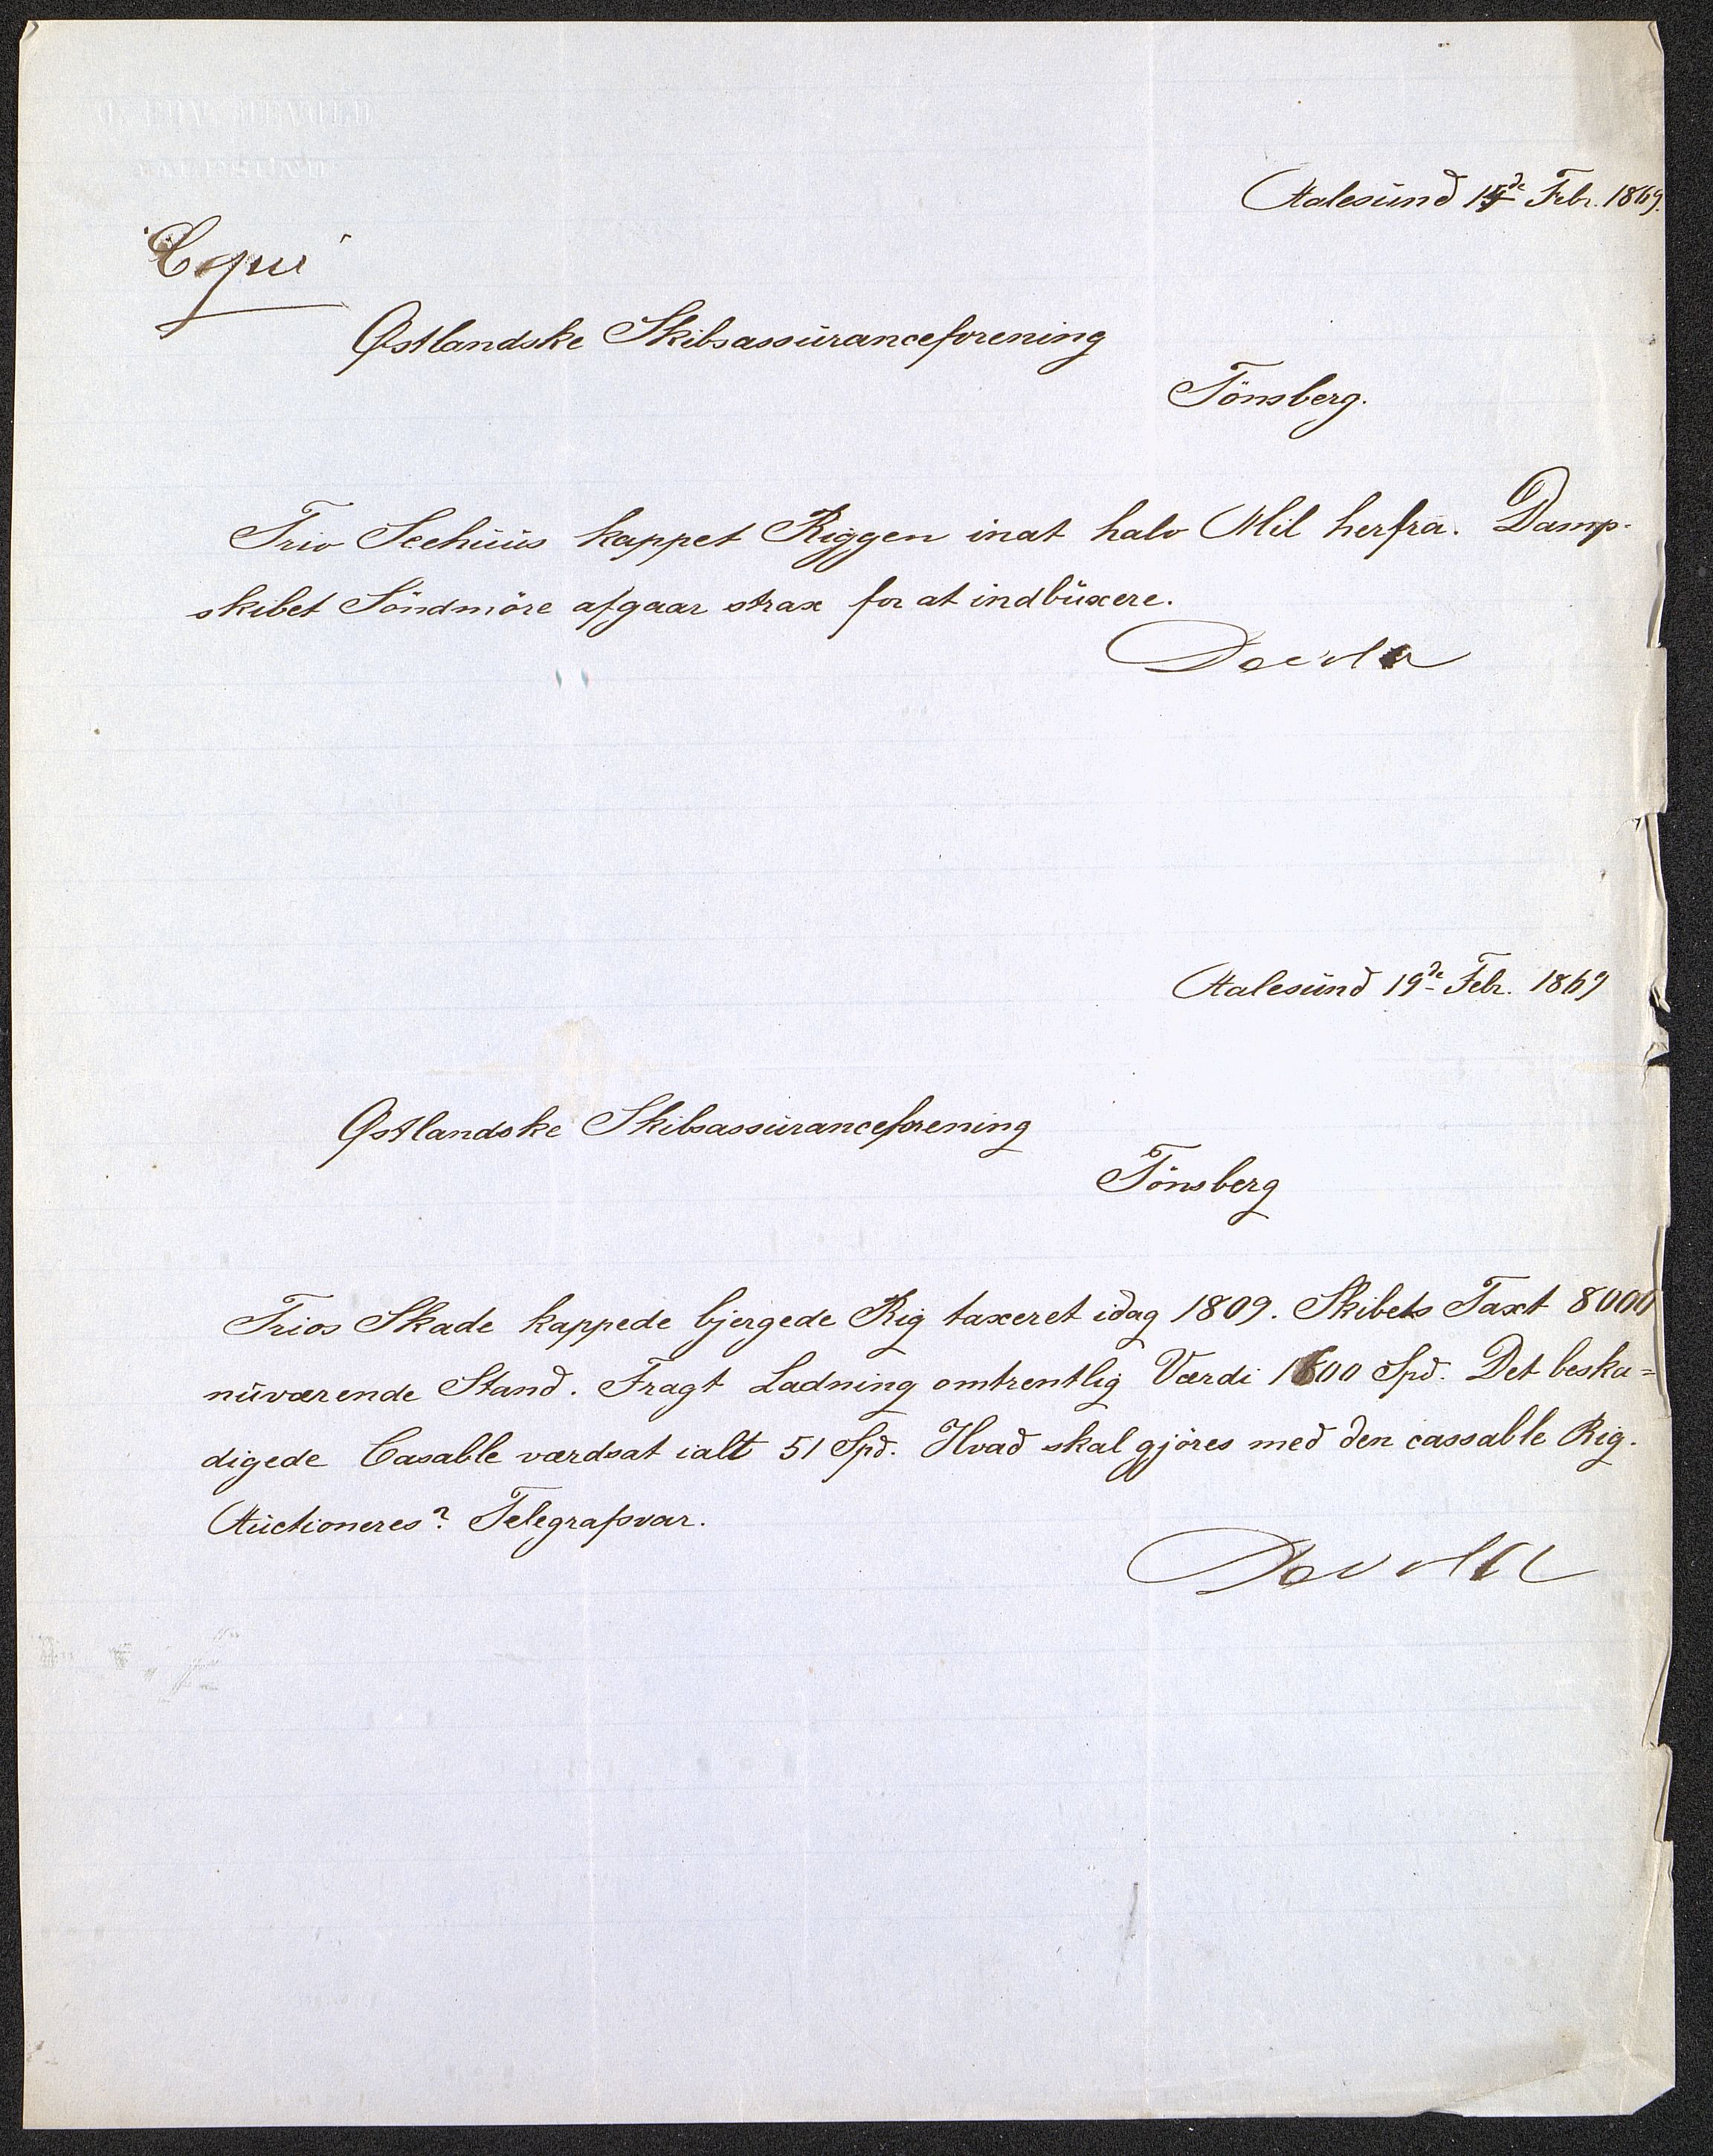 O. EDV. DEVOLD
AALESUND
Aalesund 14de Febr. 1869.
Copie
Østlandske Skibsassuranceforening
Tönsberg.
Trio Seehuus kappet Riggen inat halv Mil herfra. Damp-
skibet Söndmöre afgaar strax for at indbuxere.
Devold
Aalesund 19de Febr. 1869
Østlandske Skibsassuranceforening
Tönsberg
Trios Skade kappede bjergede Rig taxeret idag 1809. Skibets Taxt 8000
nuværende Stand. Fragt Ladning omtrentlig Værdi 1600 Spd. Det beska=
digede Casable værdsat ialt 51 Spd. Hvad skal gjöres med den cassable Rig.
Auctioneres? Telegrafsvar.
Devold